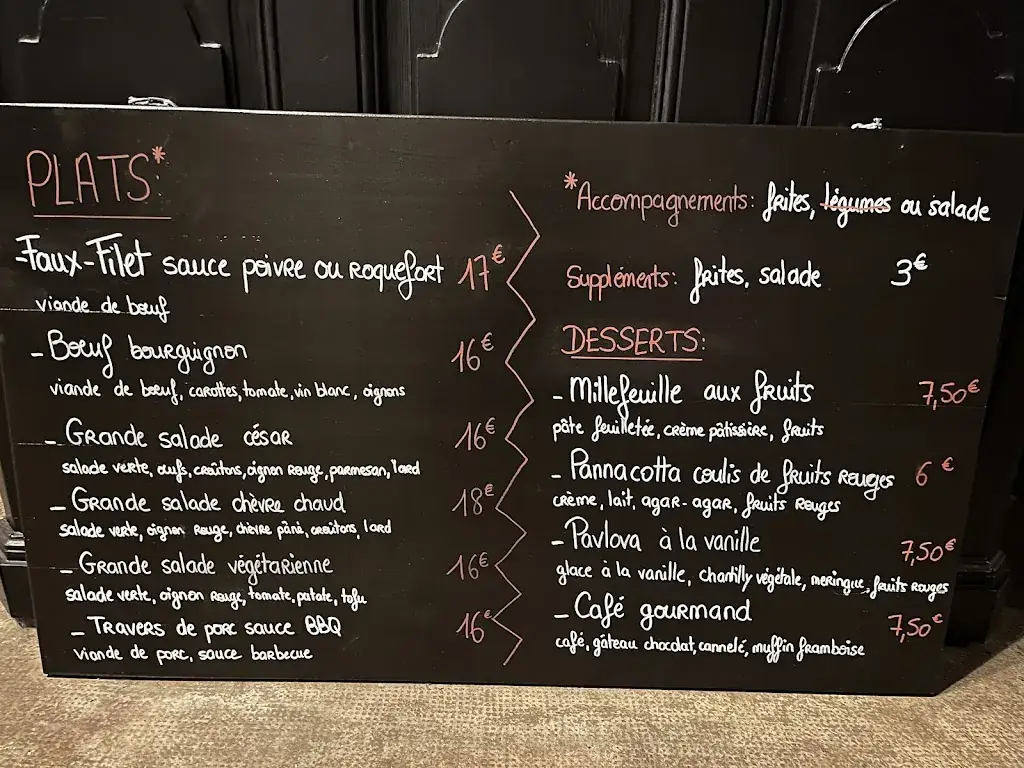 PLATS*:
-Faux-Filet sauce poivre ou roquefort 17€
viande de bœuf
- Bœuf bourguignon 16€
viande de bœuf, carottes, tomate, vin blanc, oignons
- Grande salade césar 16€
salade verte, œufs, croûtons, oignon rouge, parmesan, lard
- Grande salade chèvre chaud 18€
salade verte, oignon rouge, chèvre pâné, croûtons, lard
- Grande salade végétarienne 16€
salade verte, oignon rouge, tomate, patate, tofu
- Travers de porc sauce BBQ 16€
viande de porc, sauce barbecue
*Accompagnements: frites, légumes ou salade
Suppléments: frites, salade 3€
DESSERTS:
- Millefeuille aux fruits 7,50€
pâte feuilletée, crème pâtissière, fruits
- Pannacotta coulis de fruits rouges 6€
crème, lait, agar-agar, fruits rouges
- Pavlova à la vanille 7,50€
glace à la vanille, chantilly végétale, meringue, fruits rouges
- Café gourmand 7,50€
café, gâteau chocolat, cannelé, muffin framboise